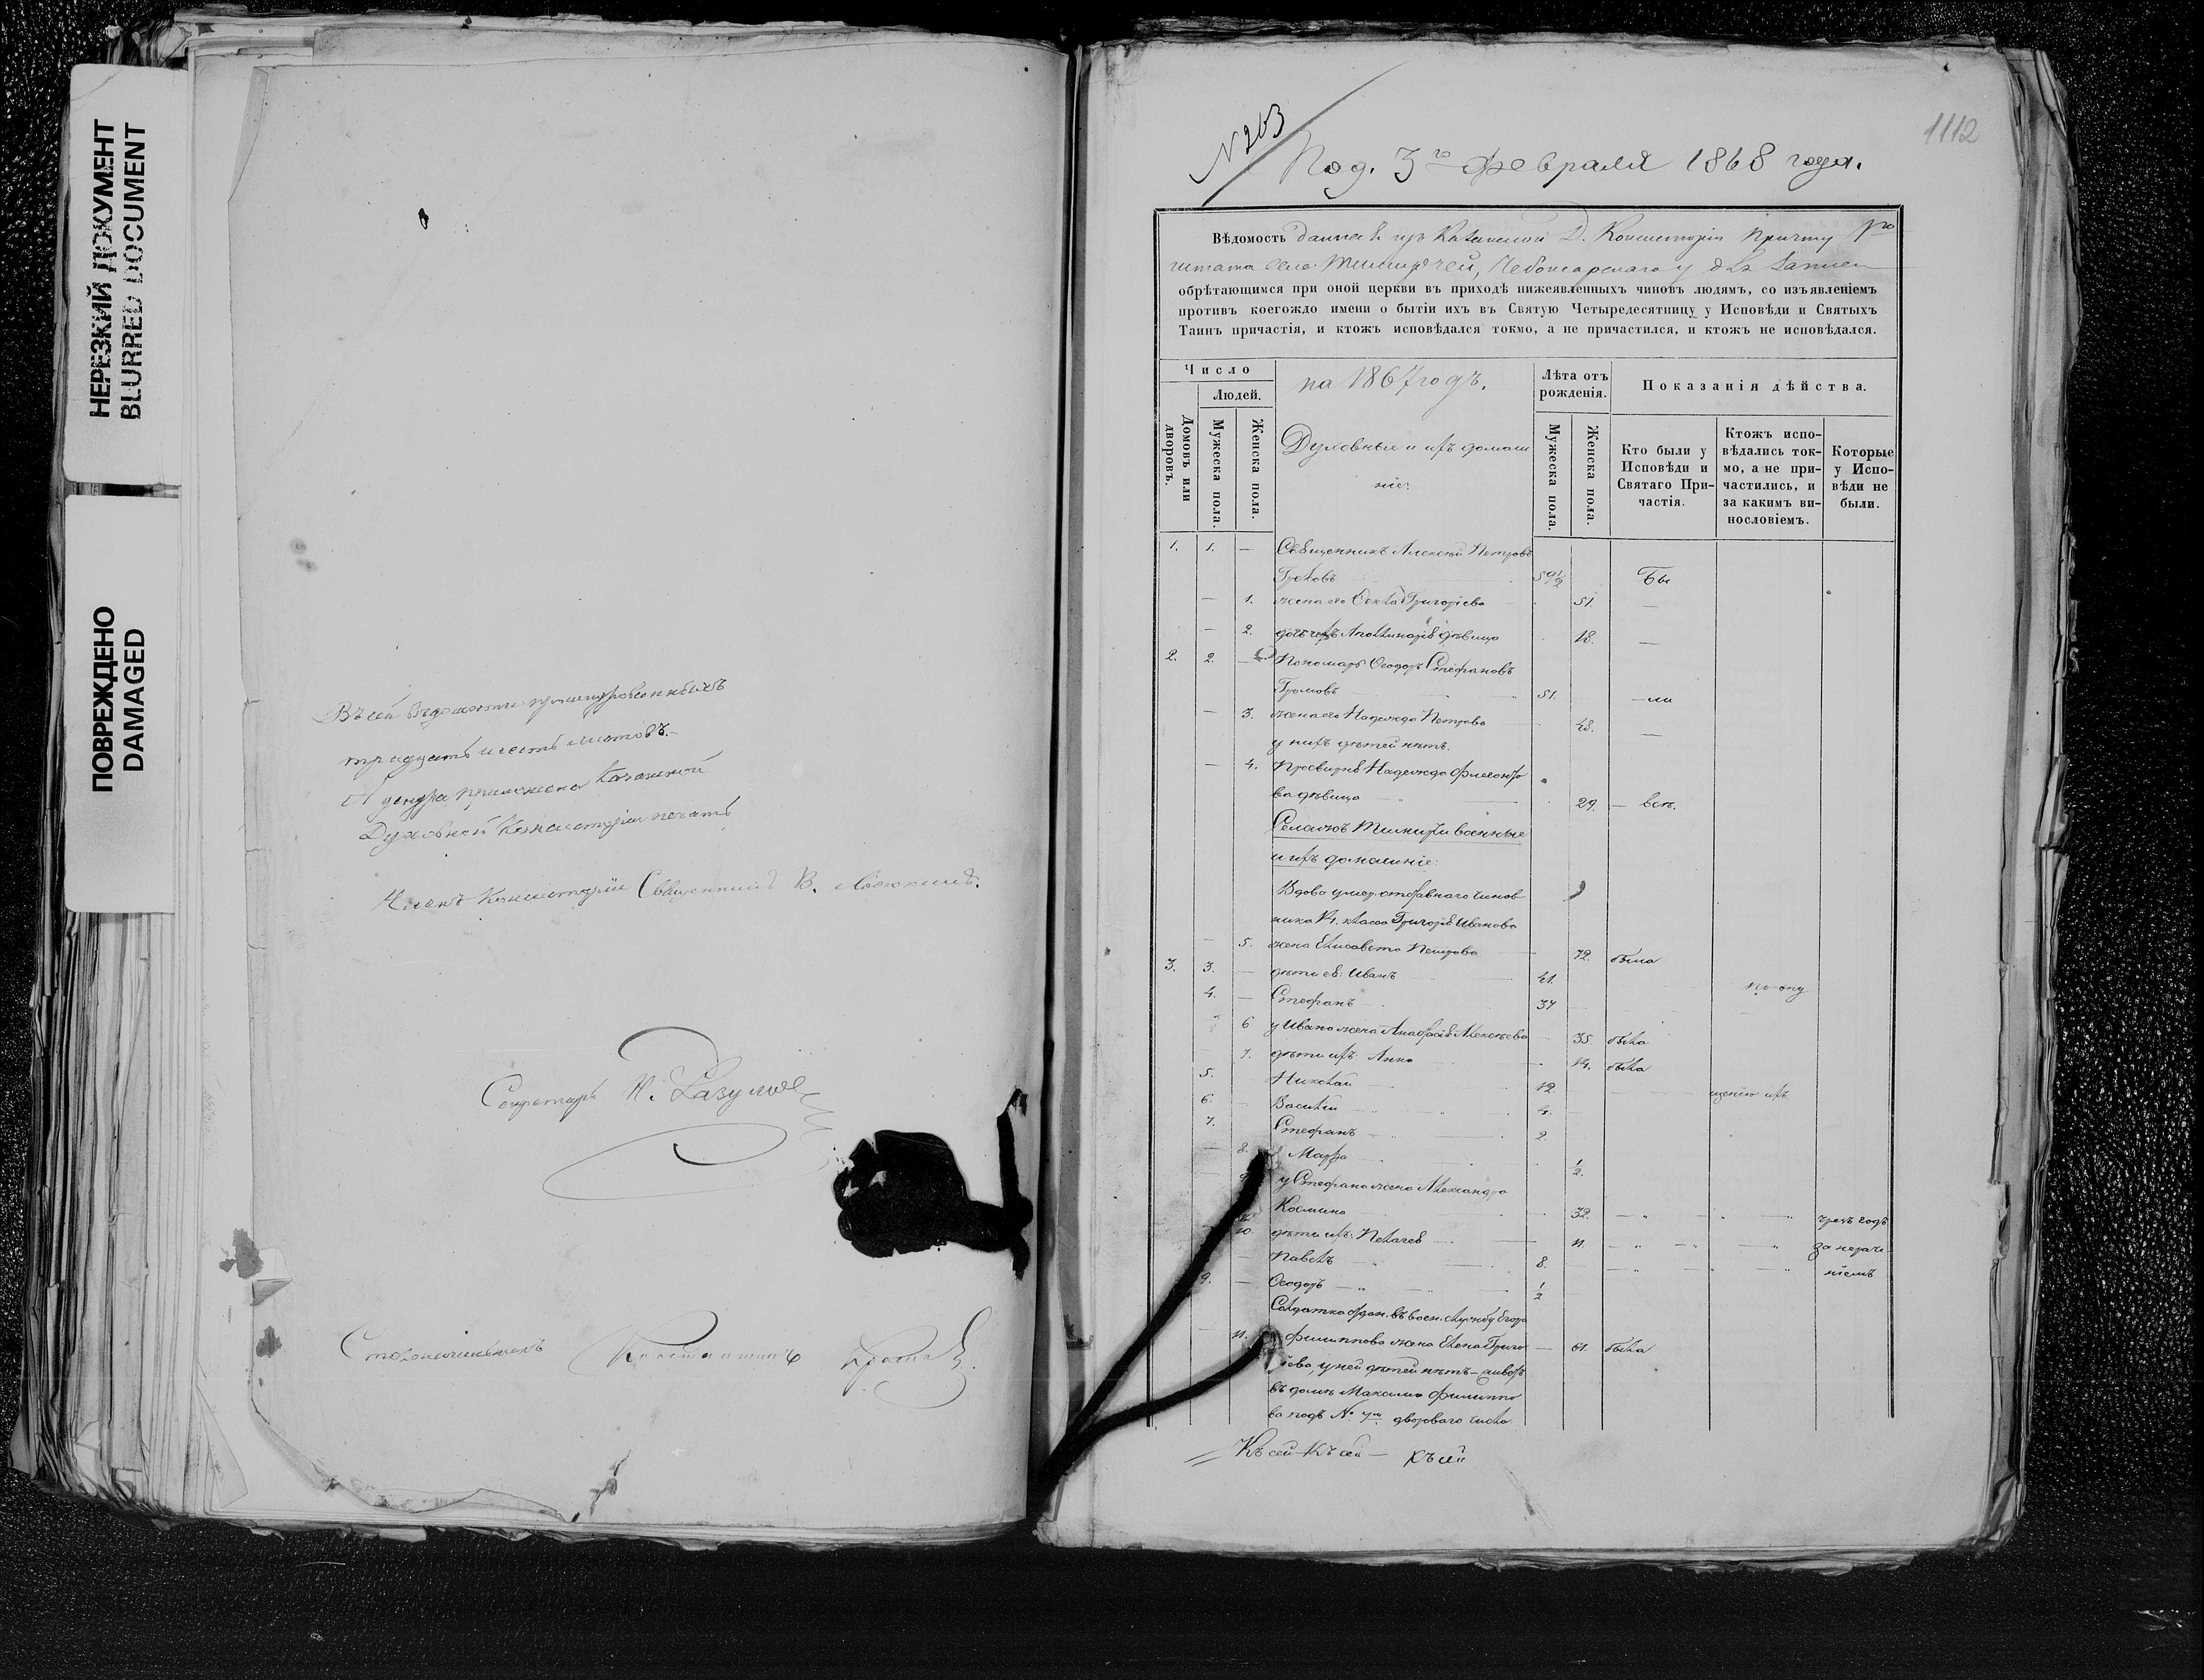 НЕРЕЗКИЙ ДОКУМЕНТ
BLURRED DOCUMENT
ПОВРЕЖДЕНО
DAMAGED
Въ сей вѣдомости прошнурованныхъ
тридцать шесть листовъ.
Къ шнуру приложена Казанской
Духовной Консисторіи печать
Членъ Консисторіи Священникъ В.
Секретарь Н. Разумов
Столоначальникъ Константинъ
1112
N 203
Под. 3го Февраля 1868 года.
Вѣдомость данная изъ Казанской Д. Консисторіи причту
штата села Тиширчей, Чебоксарскаго у для записи
обрѣтающимся при оной церкви въ приходѣ нижеявленныхъ чиновъ людямъ, со изъявленіемъ
противъ коегождо имени о бытіи ихъ въ Святую Четыредесятницу у Исповѣди и Святыхъ
Таинъ причастія, и ктожъ исповѣдался токмо, а не причастился, и ктожъ не исповѣдался.
Число
Людей.
Домовъ или дворовъ.
Мужеска пола.
Женска пола.
на 1867 годъ.
Духовные и ихъ домаш
ніе:
Лѣта отъ рожденія.
Мужеска пола.
Женска пола.
Показанія дѣйства.
Кто были у Исповѣди и Святаго Причастія.
Ктожъ исповѣдались токмо, а не причастились, и за какимъ винословіемъ.
Которые у Исповѣди не были.
1. 1. — Священникъ Алексѣй Петровъ
59½ Бы
— 1. жена его Григоріева 51. —
— 2. дочь ихъ Аполлинарія дѣвица 18. —
2. 2. — Пономарь Ѳеодоръ Стефановъ
Громовъ 51. — ли
— 3. жена его Надежда Петрова 48. —
у нихъ дѣтей нѣтъ.
— 4. Просвирня Надежда
ва дѣвица 29. — всѣ.
военные
и ихъ домашніе:
Вдова умер. отставнаго чинов
ника 14. класса Григорія Иванова
— 5. жена Елисавета Петрова 72. была
3. 3. — дѣти ея: Иванъ 41.
4. — Стефанъ 37
6 у Ивана жена Анастасія Алексѣева 35. была
7. дѣти ихъ: Анна 14. была
5. Николай 12. щенію ихъ
6. Василій 4.
7. Стефанъ 2.
— 8. Марѳа ½.
у Стефана жена Александра
Космина 32. чрезъ годъ
10. дѣти ихъ: Пелагея 11. за нераче
Павелъ 8. ніемъ
9. — Ѳеодоръ ½
Солдатка отдан. въ воен. службу Егора
— 11. Филиппова жена Елена Григо 61. была
рьева, у ней дѣтей нѣтъ — живетъ
въ домѣ Максима Филиппо
ва подъ № 7м дворваго числа
Къ сей Къ сей — Къ сей